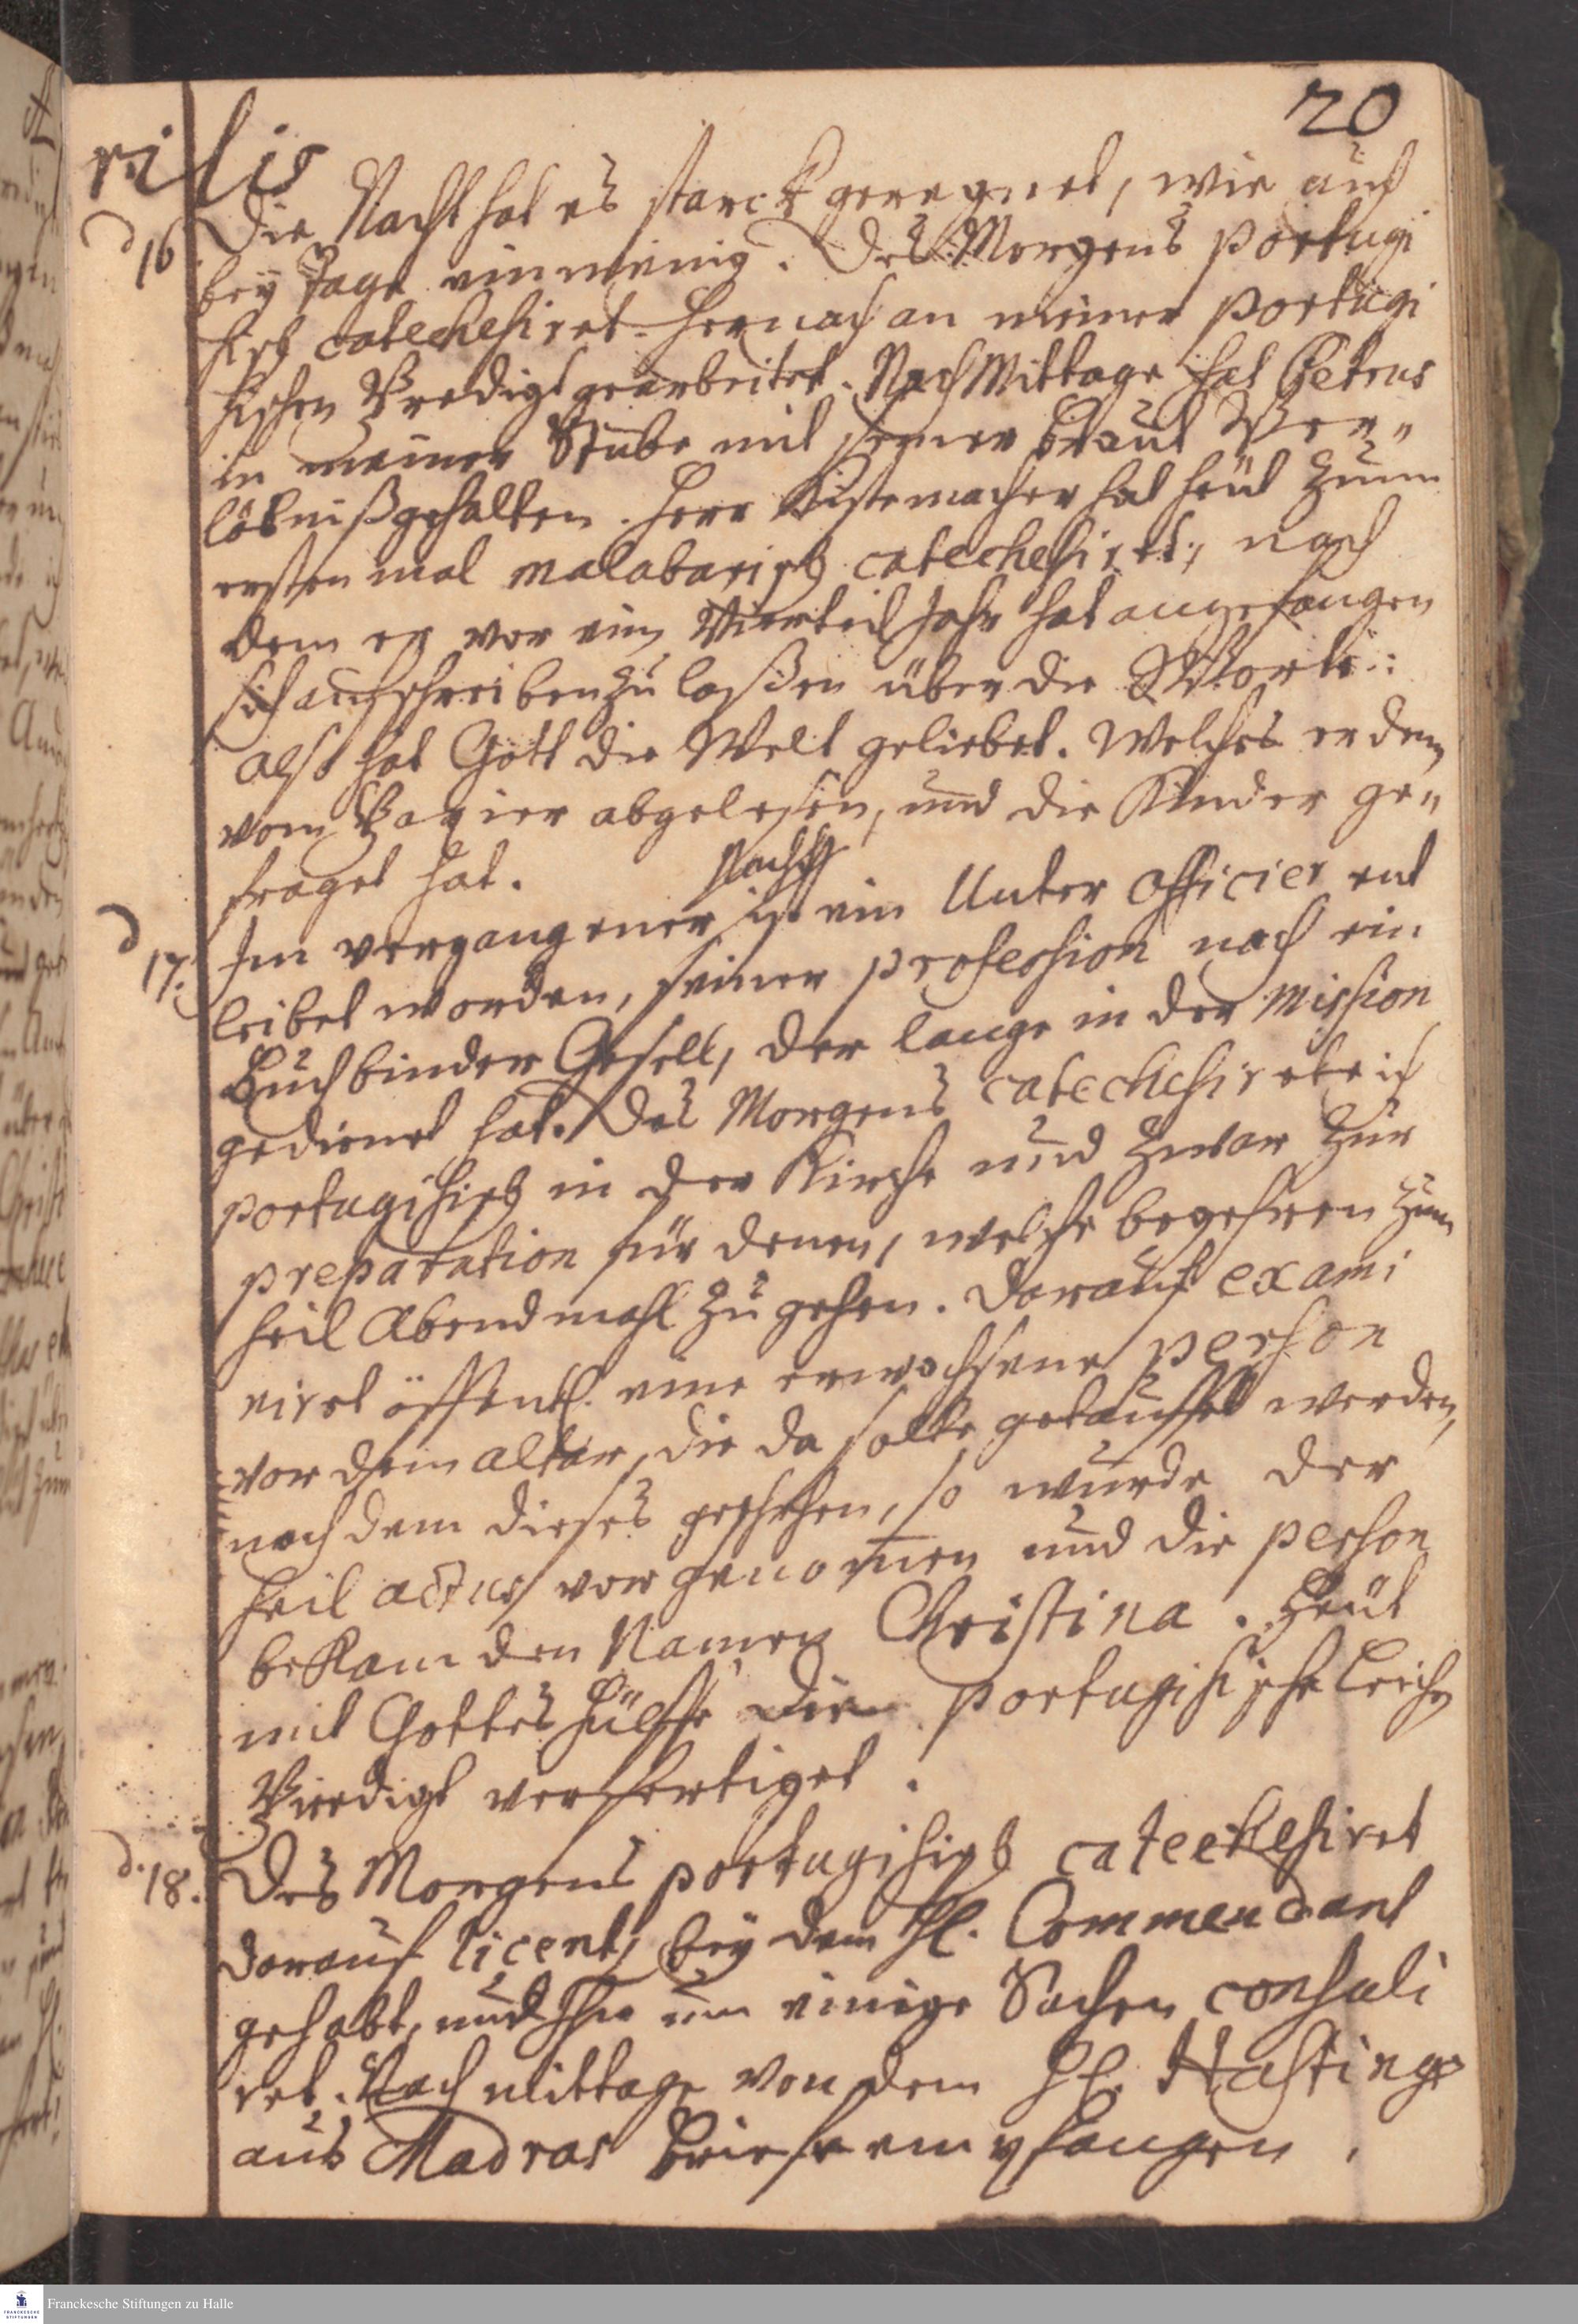 20
rilis
d 16 Die Nacht hat es starck geregnet, wie auch
bey Tage ein wenig. Des Morgens portugi
sisch catechesiret. Hernach an meiner portugi
sischen Predigt gearbeitet. Nach Mittage hat Petrus
in meiner Stube mit seiner Braut Ver"
löbniß gehalten. Herr Kistemacher hat heut zum
ersten mal malabarisch catechesiret, nach
dem er vor ein Vierteil Jahr hat angefangen
sich aufschreiben zu laßen über die Worte:
also hat Gott die Welt geliebet. Welches er denn
vom Papier abgelesen, und die Kinder ge"
fraget hat.
Nacht
d 17. In vergangener ist ein Unter Officier ent
leibet worden, seiner profession nach ein
Buchbinder Gesell, der lange in der Mission
gedienet hat. Des Morgens catechesirete ich
portugisisch in der Kirche und zwar zur
preparation für denen, welche begehren zum
heil Abendmahl zu gehen. Darauf exami
niret öffentl. eine erwachsene person
vor dem altar, die da solte getauffet werden,
nach dem dieses geschehen, so wurde der
heil actus vorgenom̅en und die person
bekam den Namen Christina. Heut
mit Gottes Hülffe die portugisische Leich
Predigt verfertiget.
d. 18. Des Morgens portugisisch catechesiret
darauf licent bey dem H. Commendant
gehabt, und Ihn um einige Sachen consuli
ret. Nach mittage von dem H. Hastings
aus Madras Briefe empfangen.
Franckesche Stiftungen zu Halle